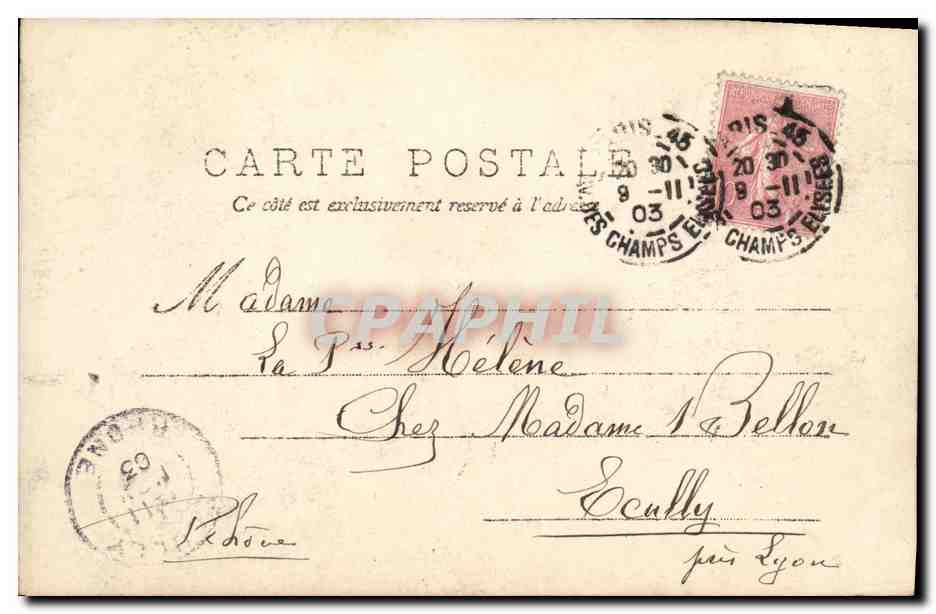 CARTE POSTALE
Ce côté est exclusivement reservé à l'adresse
PARIS 45
20 30
9 -11
03
AV. DES CHAMPS ELYSEES
PARIS 45
20 30
9 -11
03
CHAMPS ELYSEES
CPAPHIL
Madame
La Pss Hélène
Chez Madame Bellon
Ecully
près Lyon
Rhône
RHONE
03